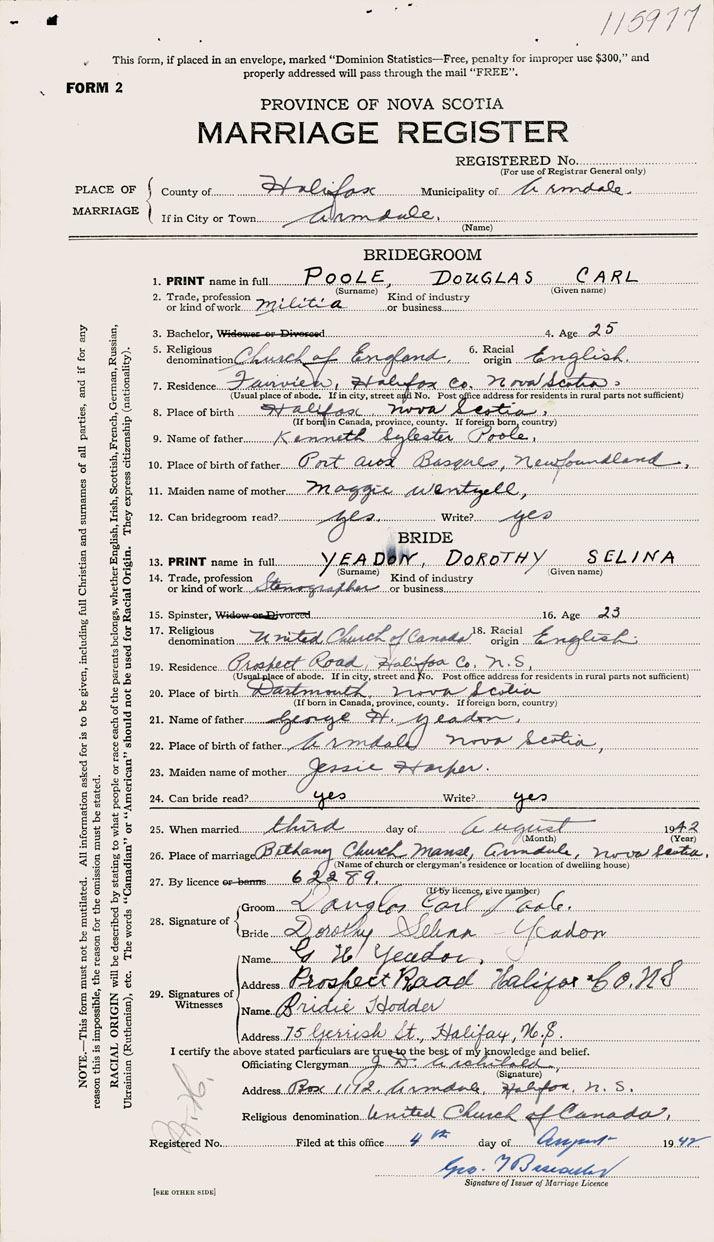 115977
This form, if placed in an envelope, marked "Dominion Statistics—Free, penalty for improper use $300," and
properly addressed will pass through the mail "FREE".
FORM 2
PROVINCE OF NOVA SCOTIA
MARRIAGE REGISTER
REGISTERED No.
(For use of Registrar General only)
PLACE OF MARRIAGE
County of Halifax Municipality of Armdale.
If in City or Town Armdale.
(Name)
BRIDEGROOM
1. PRINT name in full POOLE, DOUGLAS CARL
(Surname) (Given name)
2. Trade, profession or kind of work Militia Kind of industry or business
3. Bachelor, Widower or Divorced 4. Age 25
5. Religious denomination Church of England. 6. Racial origin English.
7. Residence Fairview, Halifax Co. Nova Scotia.
(Usual place of abode. If in city, street and No. Post office address for residents in rural parts not sufficient)
8. Place of birth Halifax Nova Scotia.
(If born in Canada, province, county. If foreign born, country)
9. Name of father Kenneth Sylester Poole,
10. Place of birth of father Port aux Basques, Newfoundland,
11. Maiden name of mother Maggie Wentzell,
12. Can bridegroom read? yes. Write? yes
BRIDE
13. PRINT name in full YEADON, DOROTHY SELINA
(Surname) (Given name)
14. Trade, profession or kind of work Stenographer Kind of industry or business
15. Spinster, Widow or Divorced 16. Age 23
17. Religious denomination United Church of Canada 18. Racial origin English.
19. Residence Prospect Road, Halifax Co. N.S,
(Usual place of abode. If in city, street and No. Post office address for residents in rural parts not sufficient)
20. Place of birth Dartmouth, Nova Scotia
(If born in Canada, province, county. If foreign born, country)
21. Name of father George H. Yeadon,
22. Place of birth of father Armdale Nova Scotia,
23. Maiden name of mother Jessie Harper.
24. Can bride read? yes Write? yes
25. When married third day of August 1942
(Month) (Year)
26. Place of marriage Bethany Church Manse, Armdale, Nova Scotia.
(Name of church or clergyman's residence or location of dwelling house)
27. By licence or banns 62289.
(If by licence, give number)
28. Signature of
Groom Douglas Carl Poole.
Bride Dorothy Selina Yeadon
29. Signatures of Witnesses
Name G H Yeadon,
Address Prospect Road Halifax Co. N S
Name Bridie Hodder
Address 75 Gerrish St., Halifax, N.S.
I certify the above stated particulars are true to the best of my knowledge and belief.
Officiating Clergyman J. D. Archibald,
(Signature)
Address Box 1192, Armdale, Halifax, N. S.
Religious denomination United Church of Canada.
Registered No. Filed at this office 4th day of August 1942
Geo. T
Signature of Issuer of Marriage Licence
[SEE OTHER SIDE]
NOTE.—This form must not be mutilated. All information asked for is to be given, including full Christian and surnames of all parties, and if for any
reason this is impossible, the reason for the omission must be stated.
RACIAL ORIGIN will be described by stating to what people or race each of the parents belongs, whether English, Irish, Scottish, French, German, Russian,
Ukrainian (Ruthenian), etc. The words "Canadian" or "American" should not be used for Racial Origin. They express citizenship (nationality).